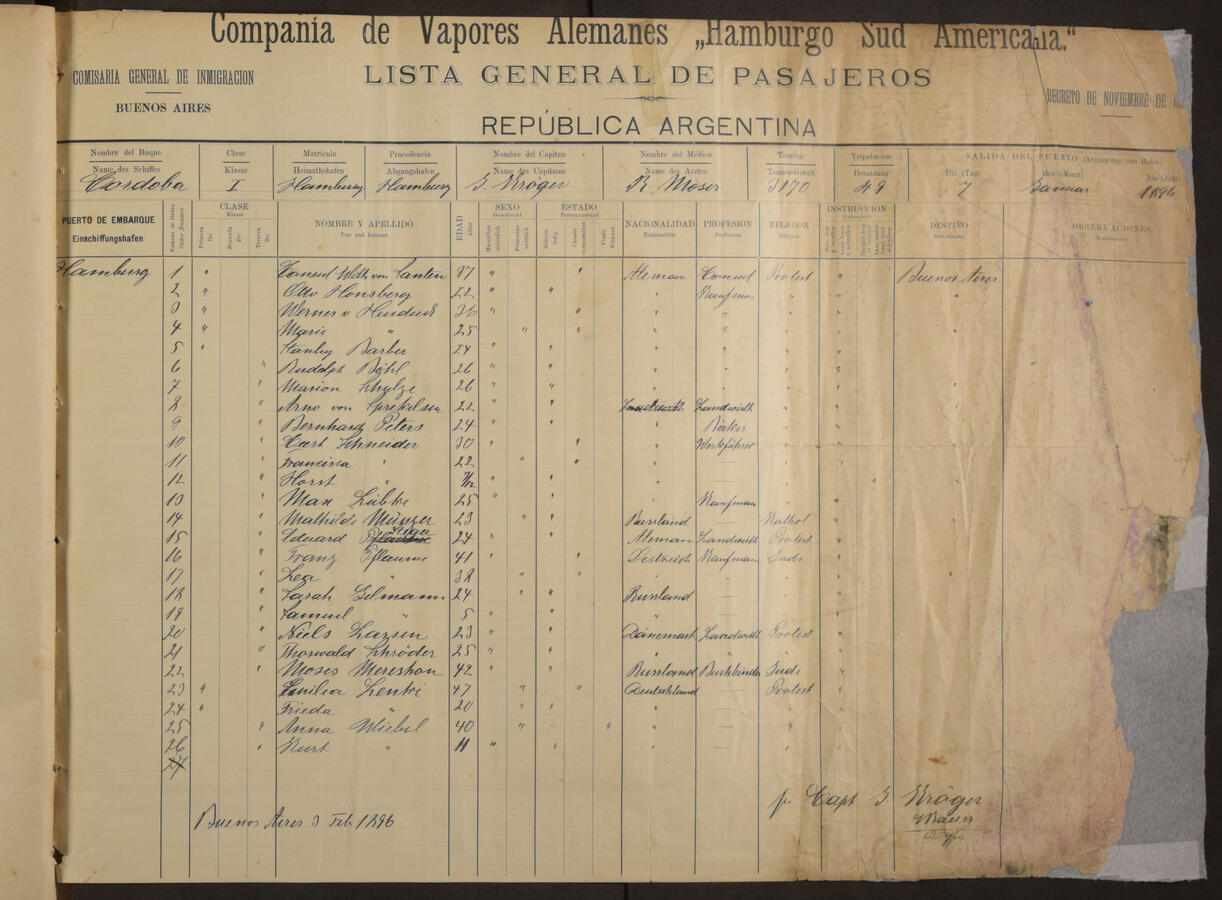 Compañía de Vapores Alemanes „Hamburgo Sud Americana."
COMISARIA GENERAL DE INMIGRACION
BUENOS AIRES
LISTA GENERAL DE PASAJEROS
REPÚBLICA ARGENTINA
DECRETO DE NOVIEMBRE DE
Nombre del Buque Clase Matrícula Procedencia Nombre del Capitan Nombre del Médico Tonelaje Tripulacion SALIDA DEL PUERTO (Abgangstag vom Hafen)
Name des Schiffes Klasse Heimathshafen Abgangshafen Name des Capitains Name des Arztes Tonnen-Gehalt Besatzung Dia (Tag) Mes (Monat) Año (Jahr)
Cordoba I Hamburg Hamburg Kröger R Moser 3170 49 7 Januar 1896
PUERTO DE EMBARQUE
Einschiffungshafen
Número de Orden
CLASE
Klasse
Primera
Segunda
Tercera
NOMBRE Y APELLIDO
Vor- und Zuname
EDAD
Alter
SEXO
Geschlecht
ESTADO
Personenstand
NACIONALIDAD
Nationalität
PROFESION
Profession
RELIGION
Religion
INSTRUCCION
DESTINO
OBSERVACIONES
Hamburg 1 " Consul Wilh. von Santen 37 " " Aleman Consul Protest " Buenos Aires
2 " Otto Honsberg 22 " " " Kaufman " "
3 " Werner v 36 " " " " " "
4 " Marie " 25 " " " " " "
5 " Stanley Barber 24 " " " " " "
6 " Rudolph Böhl 26 " " " " " "
7 " Marion Schulze 26 " " " " " "
8 " Arno von Sprekelsen 22 " " Landwirth " "
9 " Bernhard Peters 24 " " " Bäker " "
10 " Curt Schneider 30 " " " Werkführer " "
11 " Franciska " 22 " " " — " "
12 " Horst " " " " — " "
13 " Max Lübke 25 " " " Kaufman " "
14 " Mathilde Münzer 23 " " Russland — Kathol "
15 " Eduard 24 " " Aleman Landwirth Protest "
16 " Franz Pflaume 41 " " Oestreich Kaufman Jude "
17 " " 32 " " " — " "
18 " Sarah Gelmann 24 " " Russland — " "
19 " Samuel " 5 " " " — " "
20 " Niels Larsen 23 " " Dänemark Landwirth Protest "
21 " Thorwald Schröder 25 " " " " " "
22 " Moses 42 " " Russland Buchbinder Jude "
23 " Emilia Lentke 47 " " Deutschland — Protest "
24 " Frieda " 20 " " " — " "
25 " Anna Wiebel 40 " " " — " "
26 " Kurt " 11 " " " — " "
27
Buenos Aires 3 Feb 1896
pr Capt Kröger